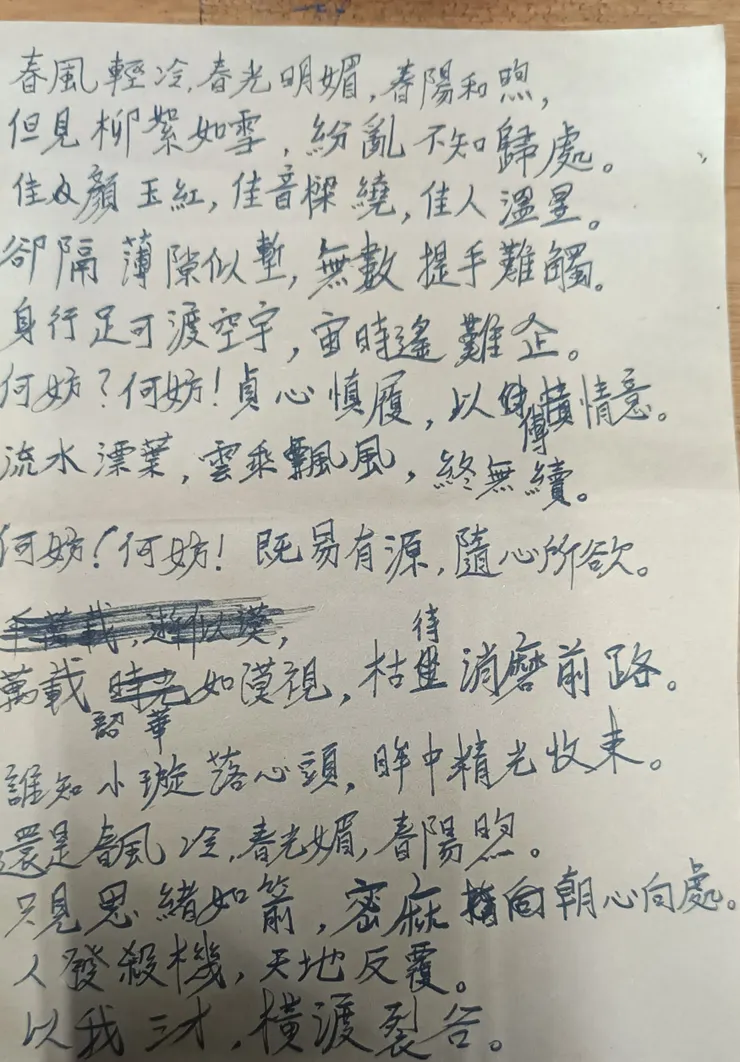 春風輕冷,春光明媚,春陽和煦,
但見柳絮如雪,紛亂不知歸處。
佳人顏玉紅,佳音樑繞,佳人溫星。
卻隔薄隙似塹,無數提手難觸。
身行足可渡空宇,宙時遙難企。
何妨?何妨!貞心慎履,以傳情意。
流水漂葉,雲乘飄風,終無續。
何妨!何妨!既易有源,隨心所欲。
千萬載,逝似漠,
萬載韶華如漠視,枯待消磨前路。
誰知小璇落心頭,眸中精光收束。
還是春風冷,春光媚,春陽煦。
只見思緒如箭,密麻指向朝心向處。
人發殺機,天地反覆。
以我三才,橫渡裂谷。